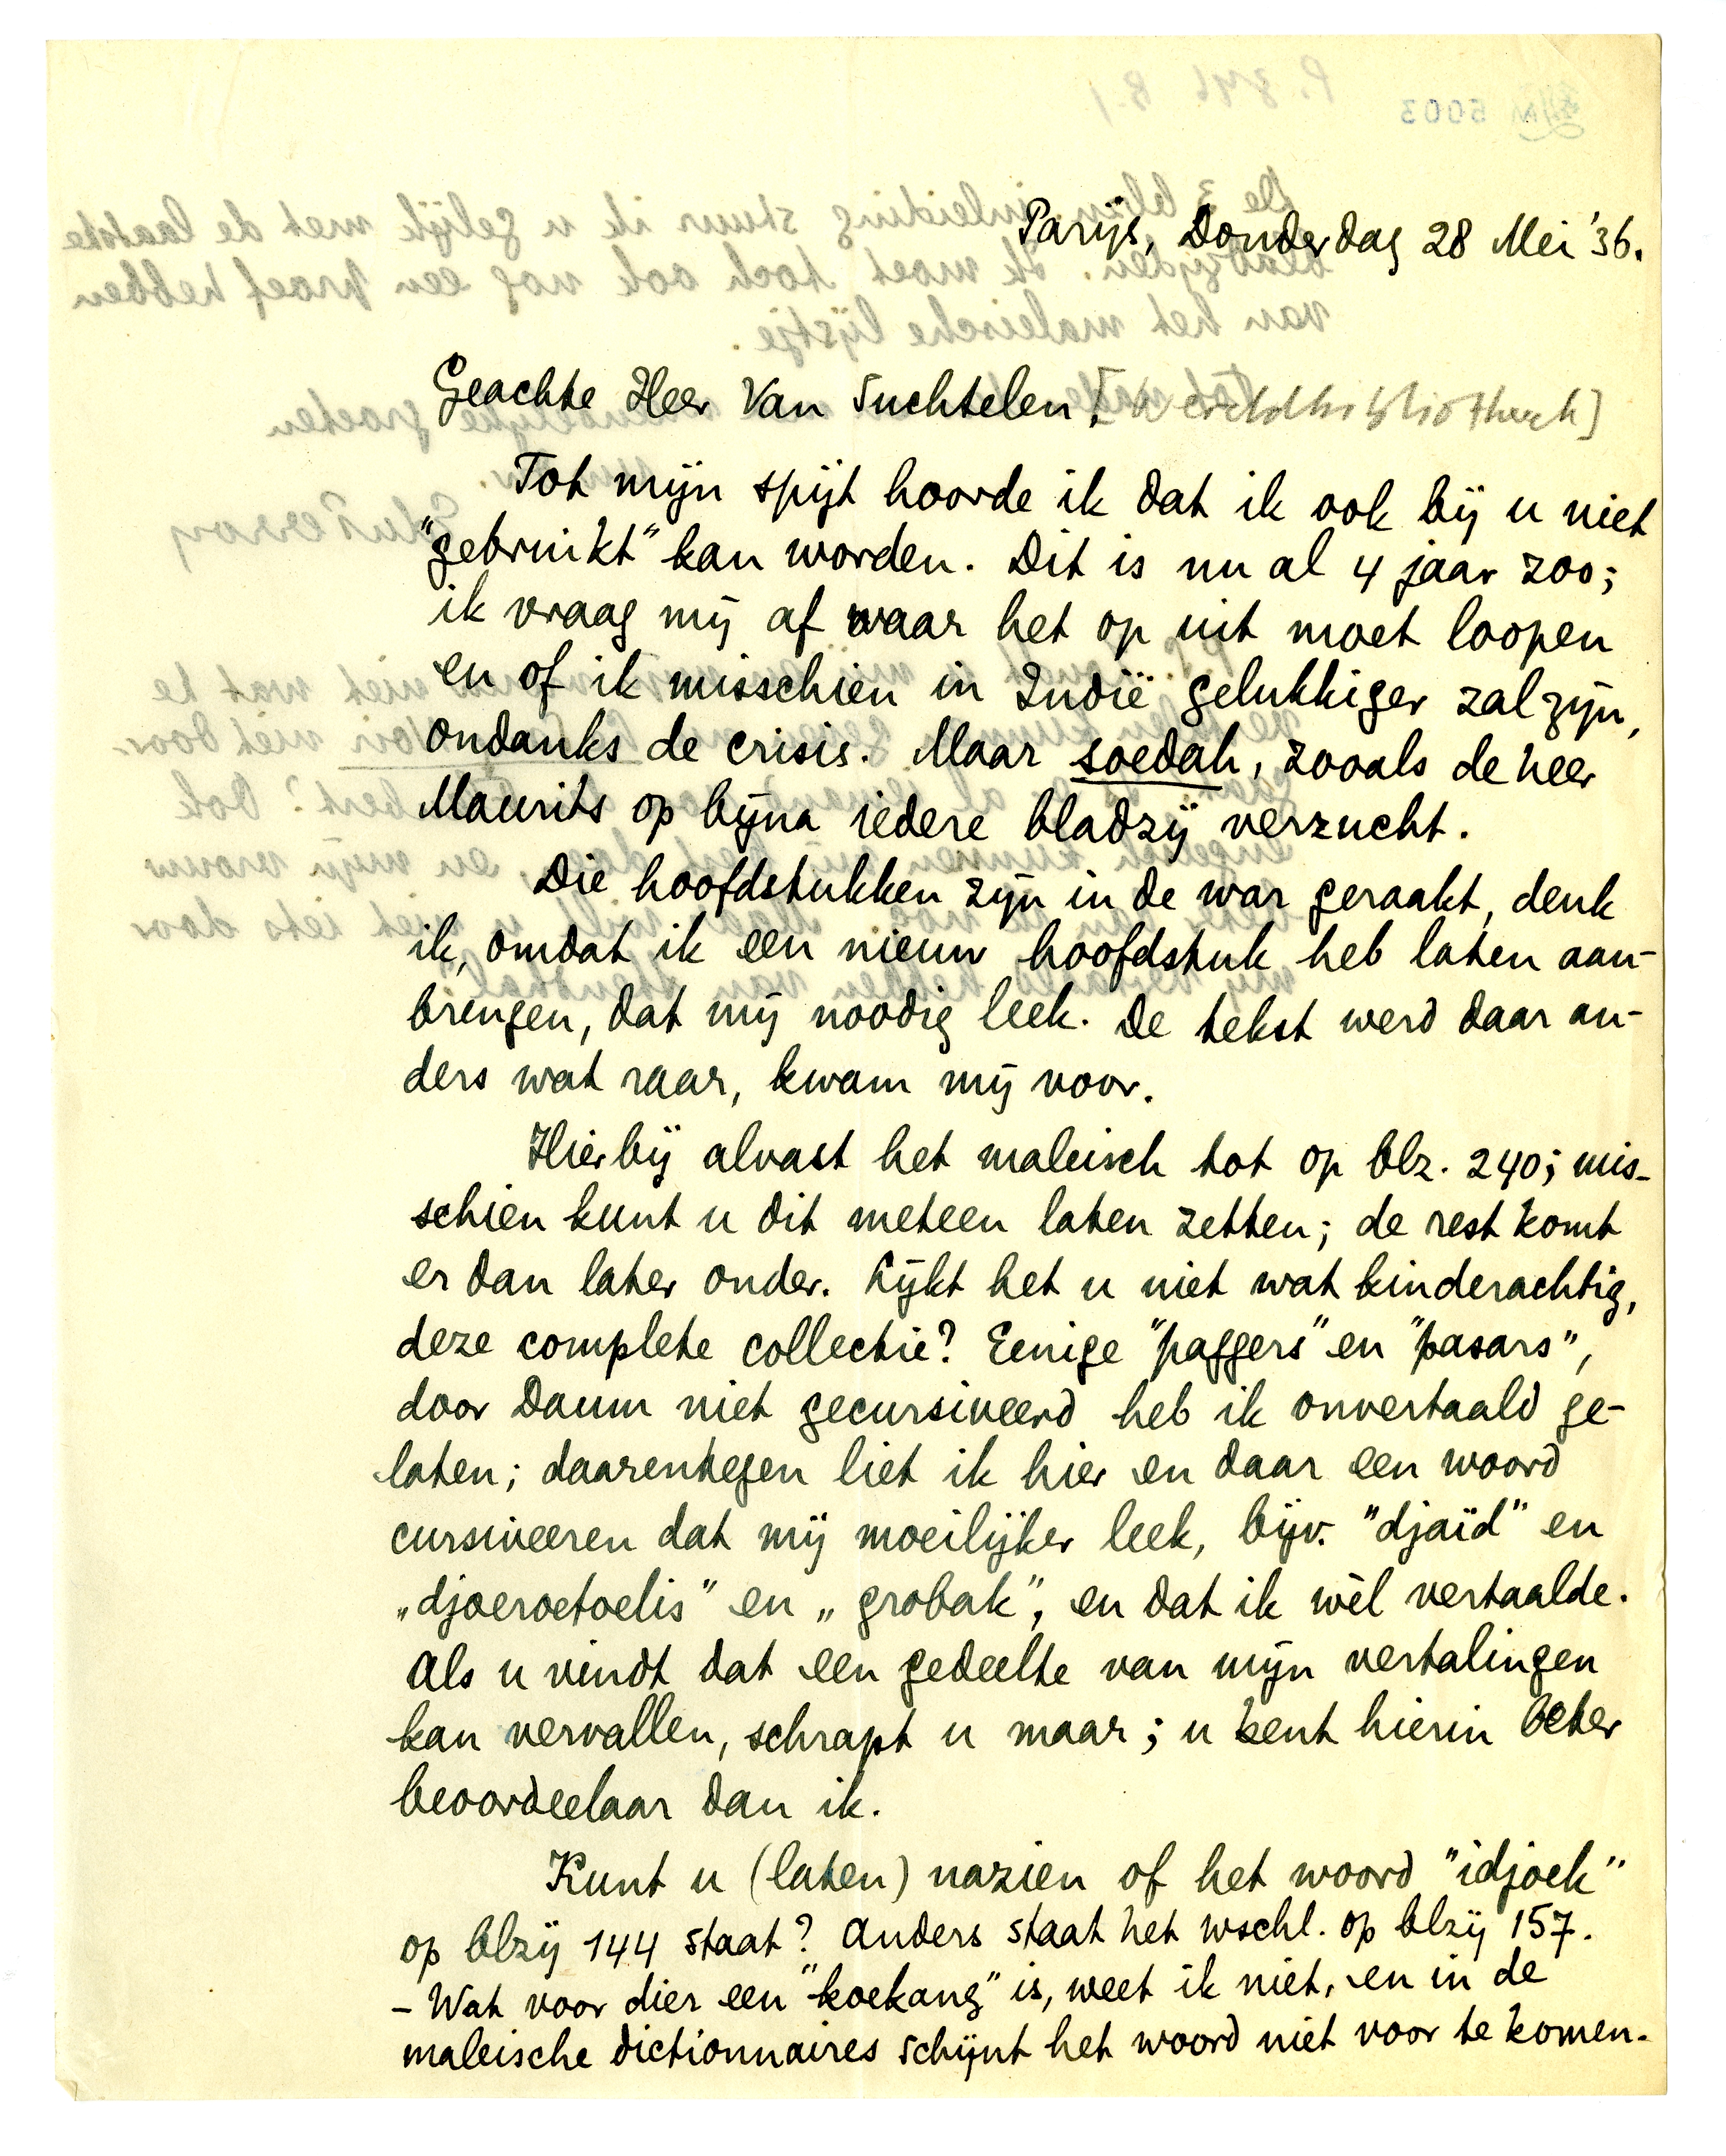 5003
Parijs, Donderdag 28 Mei '36.
Geachte Heer Van Suchtelen, [Wereldbibliotheek]
Tot mijn spijt hoorde ik dat ik ook bij u niet
"gebruikt" kan worden. Dit is nu al 4 jaar zoo;
ik vraag mij af waar het op uit moet loopen
en of ik misschien in Indië gelukkiger zal zijn,
ondanks de crisis. Maar soedah, zooals de heer
Maurits op bijna iedere bladzij verzucht.
Die hoofdstukken zijn in de war geraakt, denk
ik, omdat ik een nieuw hoofdstuk heb laten aan-
brengen, dat mij noodig leek. De tekst werd daar an-
ders wat raar, kwam mij voor.
Hierbij alvast het maleisch tot op blz. 240; mis-
schien kunt u dit meteen laten zetten; de rest komt
er dan later onder. Lijkt het u niet wat kinderachtig,
deze complete collectie? Eenige "paggers" en "pasars",
door Daum niet gecursiveerd heb ik onvertaald ge-
laten; daarentegen liet ik hier en daar een woord
cursiveeren dat mij moeilijker leek, bijv. "djaïd" en
„djoeroetoelis" en „grobak", en dat ik wèl vertaalde.
Als u vindt dat een gedeelte van mijn vertalingen
kan vervallen, schrapt u maar; u bent hierin beter
beoordeelaar dan ik.
Kunt u (laten) nazien of het woord "idjoek"
op blzij 144 staat? Anders staat het wschl. op blzij 157.
- Wat voor dier een "koekang" is, weet ik niet, en in de
maleische dictionnaires schijnt het woord niet voor te komen.